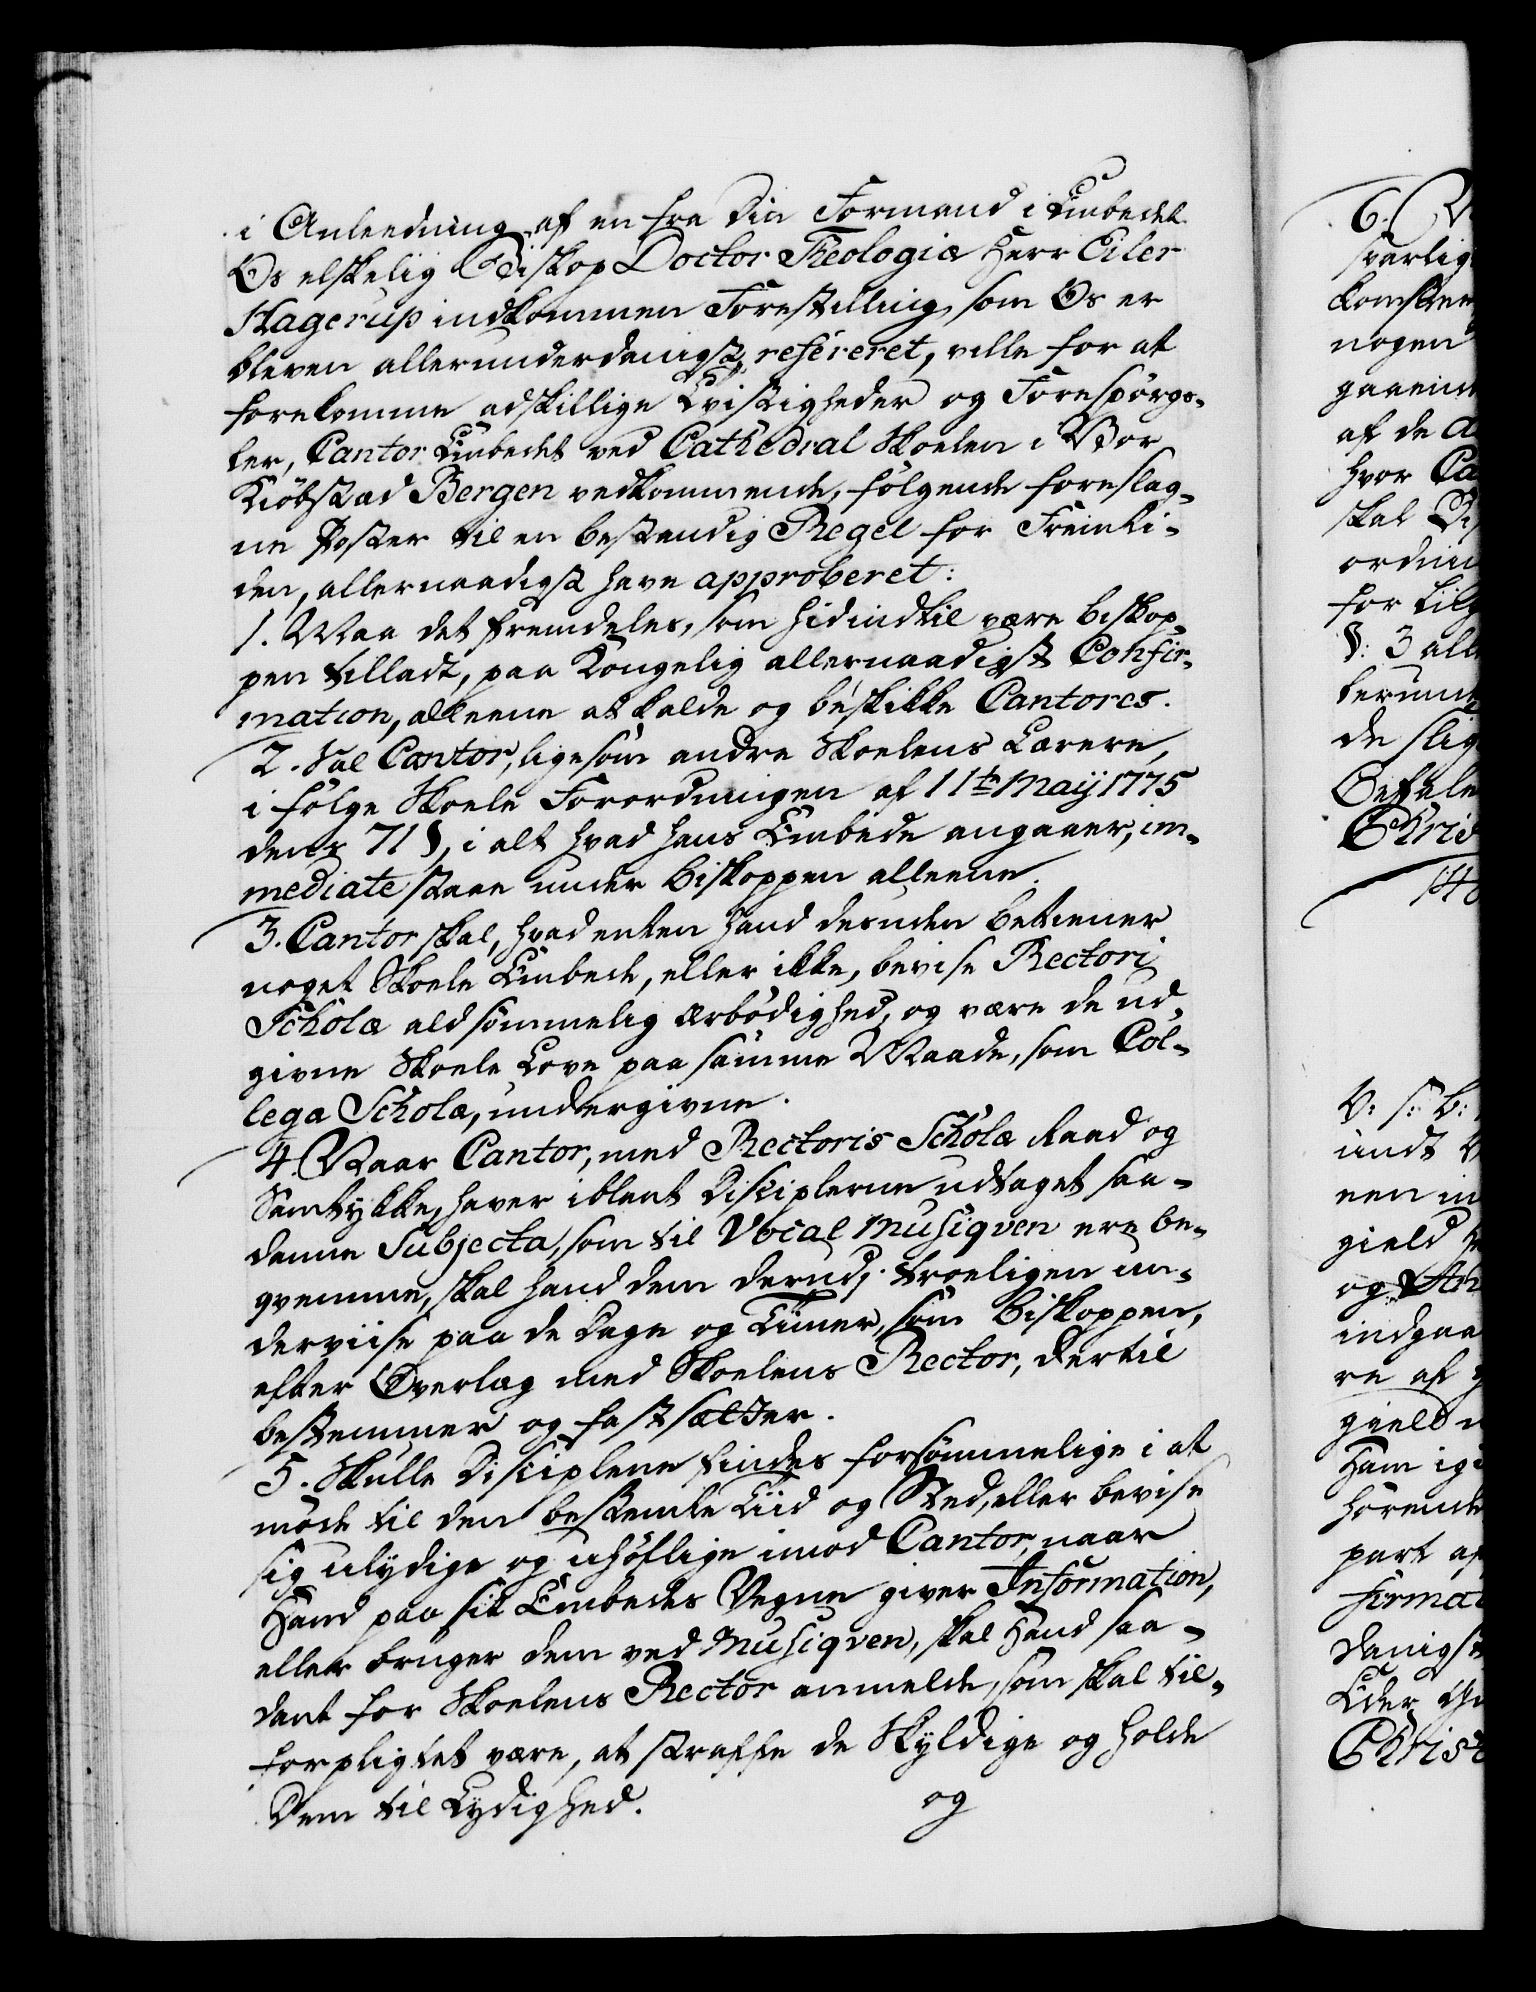 i Anleedning af en fra Din Formand i Embedet
Os elskelig Biskop Doctor Theologiæ Herr Eiler
Hagerup indkommen Forestilling, som Os er
bleven allerunderdanigst refereret, ville for at
forekomme adskillige Tvistigheder og Forespørgs-
ler, Cantor Embedet ved Cathedral Skolen i Vor
Kiøbstæd Bergen vedkommende, følgende foreslag-
ne Poster til en bestendig Regel for Fremti-
den, allernaadigst have approberet:
1. Maa det fremdeles, som hidindtil være Biskop-
pen tilladt, paa Kongelig allernaadigst Confir-
mation, alleene at kalde og beskikke Cantores.
2. Sal Cantor, ligesom andre Skolens Lærere,
i følge Skole Forordningen af 11te Maij 1775
dens 71 §, i alt hvad hans Embede angaaer, im-
mediate staae under Biskoppen alleene.
3. Cantor skal, hvad enten hand desuden betiener
noget Skole Embede, eller ikke, bevise Rectori
Scholæ ald sømmelig Ærbødighed, og være de ud-
givne Skole Love paa samme Maade, som Col-
lega Scholæ, undergivne.
4 Naar Cantor, med Rectoris Scholæ Raad og
Samtykke, haver iblant Disciplerne udtaget saa-
danne Subjecta, som til Vocal Musiqven ere be-
qvemme, skal hand dem derudj troeligen un-
derviise paa de Dage og Tiimer, som Biskoppen,
efter Overlæg med Skolens Rector, dertil
bestemmer og fastsætter.
5. Skulle Disciplerne findes forsømmelige i at
møde til den bestemte Tiid og Sted, eller bevise
sig ulydige og uhøflige imod Cantor, naar
Hand paa sit Embedes Vegne giver Information,
eller bruger dem ved Musiqven, skal Hand saa-
dant for Skolens Rector anmelde, som skal til-
forpligtet være, at straffe de Skyldige og holde
Dem til Lydighed.
og
6.
svarlig
nogen
af de A
hvor Ca
skal
for til
§: 3 all
de slig
Befale
Chris
V: S: B:
gield
og
indgaa
re af
gield
Ham ig
part af
firmat
danigst
Christ